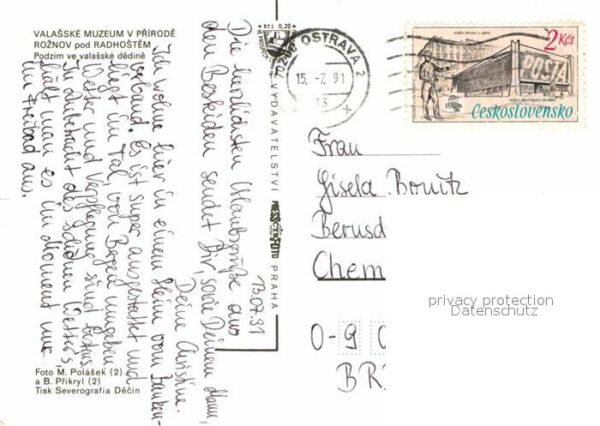 VALAŠSKÉ MUZEUM V PŘÍRODĚ
ROŽNOV pod RADHOŠTĚM
Podzim ve valašské dědině
Die herzlichsten Urlaubsgrüße aus
den Beskiden sendet Dir, sowie Deinem Mann,
Deine Christine.
Ich wohne hier in einem Heim vom Banken-
verband. Es ist super ausgestattet und
liegt im Tal, von Bergen umgeben.
Wetter und Verpflegung sind bestens.
In Anbetracht des schönen Wetters
hält man es im Moment nur
im Freibad aus.
13.07.91
Foto M. Polášek (2)
a B. Přikryl (2)
Tisk Severografia Děčín
Kčs 0,20
VYDAVATELSTVÍ
PRESSFOTO
PRAHA
OSTRAVA 2
15.-7. 91
2 Kčs
POŠTA
Československo
Frau
Gisela Bonitz
Bernsd
Chem
O-9 0
BR
privacy protection
Datenschutz